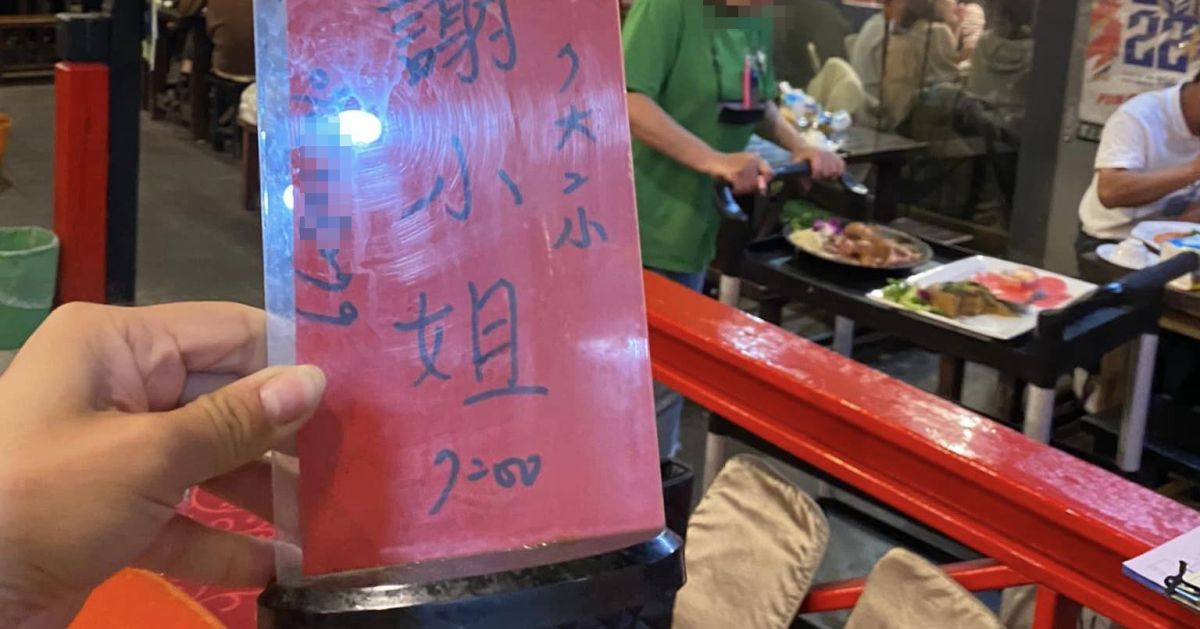 7大2小
謝小姐
7:00